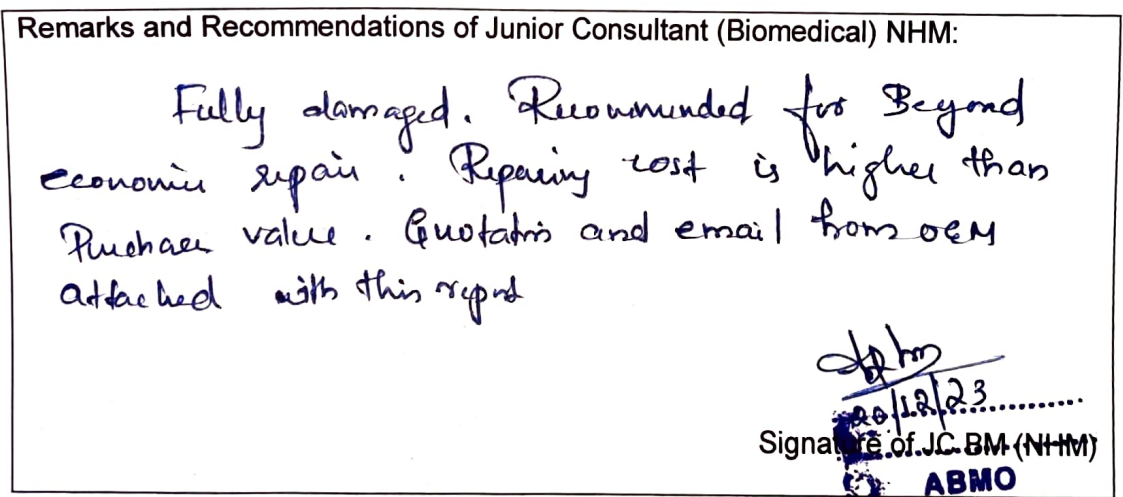 Remarks and Recommendations of Junior Consultant (Biomedical) NHM:
Fully damaged. Recommended for Beyond
economic repair. Repairing cost is higher than
Purchase value. Quotations and email from OEM
attached with this report
20/12/23
Signature of JC BM (NHM)
ABMO